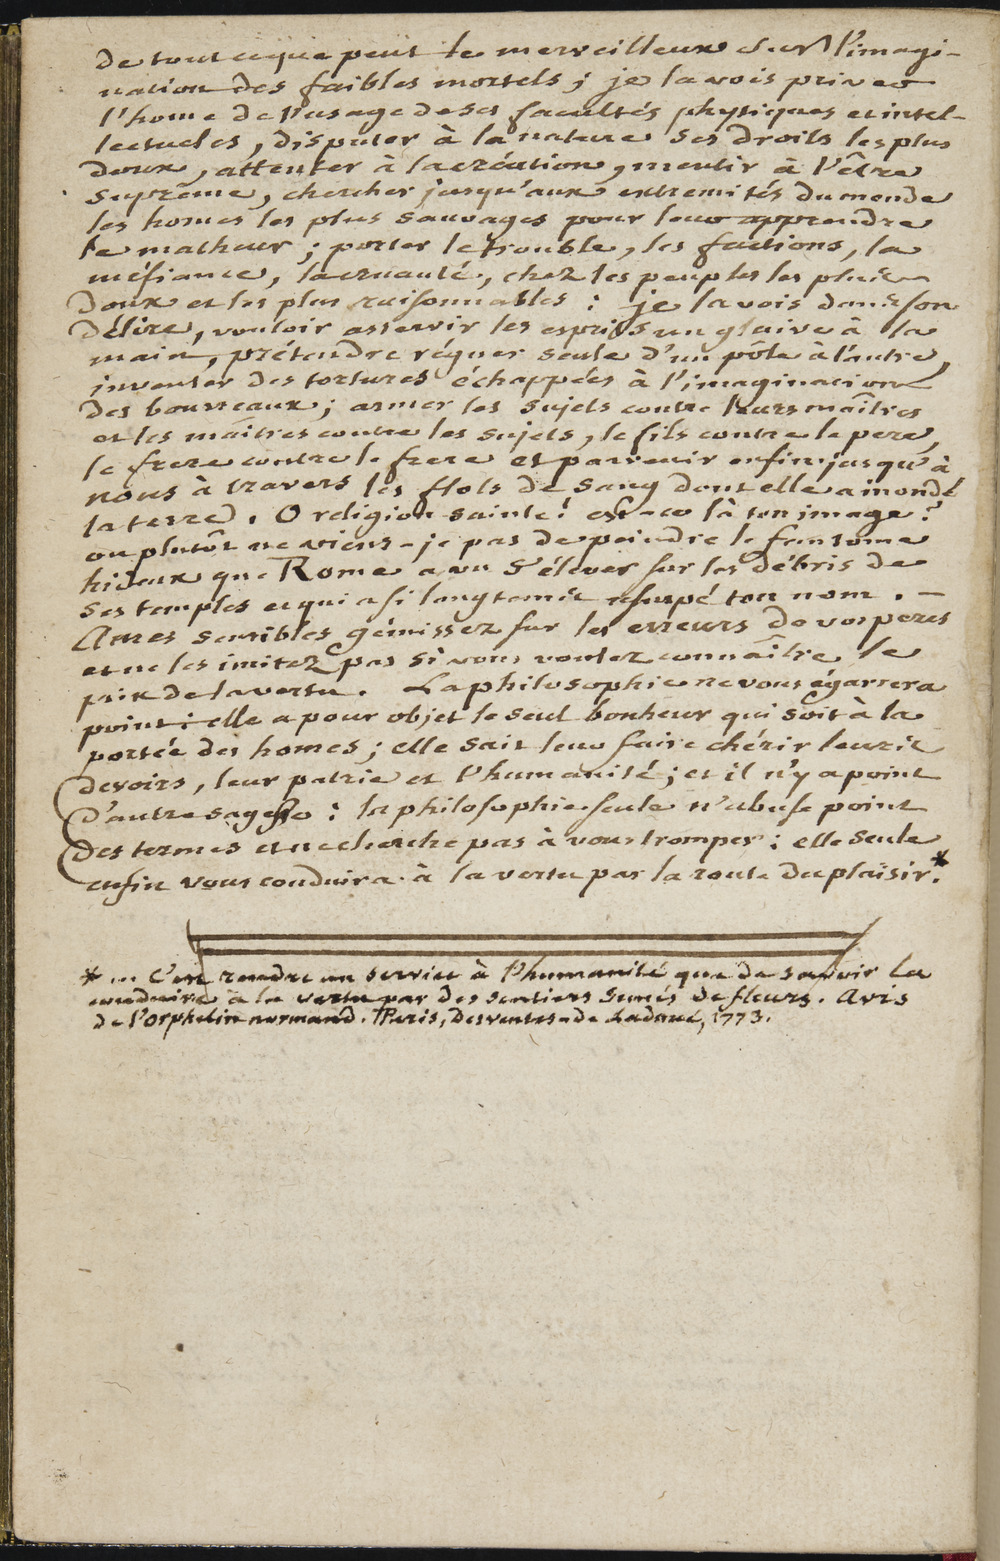 de tout ce que peut le merveilleux sur l'imagi-
nation des faibles mortels ; je la vois priver
l'home de l'usage de ses facultés physiques et intel-
lectueles, disputer à la nature ses droits les plus
doux, attenter à la création, mentir à l'être
suprême, chercher jusqu'aux extremités du monde
les homes les plus sauvages pour leur apprendre
le malheur ; porter le trouble, les factions, la
méfiance, la cruauté, chez les peuples les plus
doux et les plus raisonnables : je la vois dans son
délire, vouloir asservir les esprits un glaive à la
main, prétendre régner seule d'un pôle à l'autre,
inventer des tortures échappées à l'imagination
des bourreaux ; armer les sujets contre leurs maîtres
et les maîtres contre les sujets, le fils contre le pere,
le frere contre le frere et parvenir enfin jusqu'à
nous à travers les flots de sang dont elle a inondé
la terre. O religion sainte ! est-ce là ton image ?
ou plutôt ne viens-je pas de peindre le fantome
hideux que Rome a vu s'élever sur les débris de
ses temples et qui a si longtems usurpé ton nom. –
Ames sensibles gémissez sur les erreurs de vos peres
et ne les imitez pas si vous voulez connaître le
prix de la vertu. La philosophie ne vous égarera
point : elle a pour objet le seul bonheur qui soit à la
portée des homes ; elle sait leur faire chérir leurs
devoirs, leur patrie et l'humanité ; et il n'y a point
d'autre sagesse : la philosophie seule n'abuse point
des termes et ne cherche pas à vous tromper : elle seule
enfin vous conduira à la vertu par la route du plaisir.*
* ... C'est rendre un service à l'humanité que de savoir la
conduire à la vertu par des sentiers semés de fleurs. Avis
de l'orphelin normand. Paris, Desventes de Ladoué, 1773.